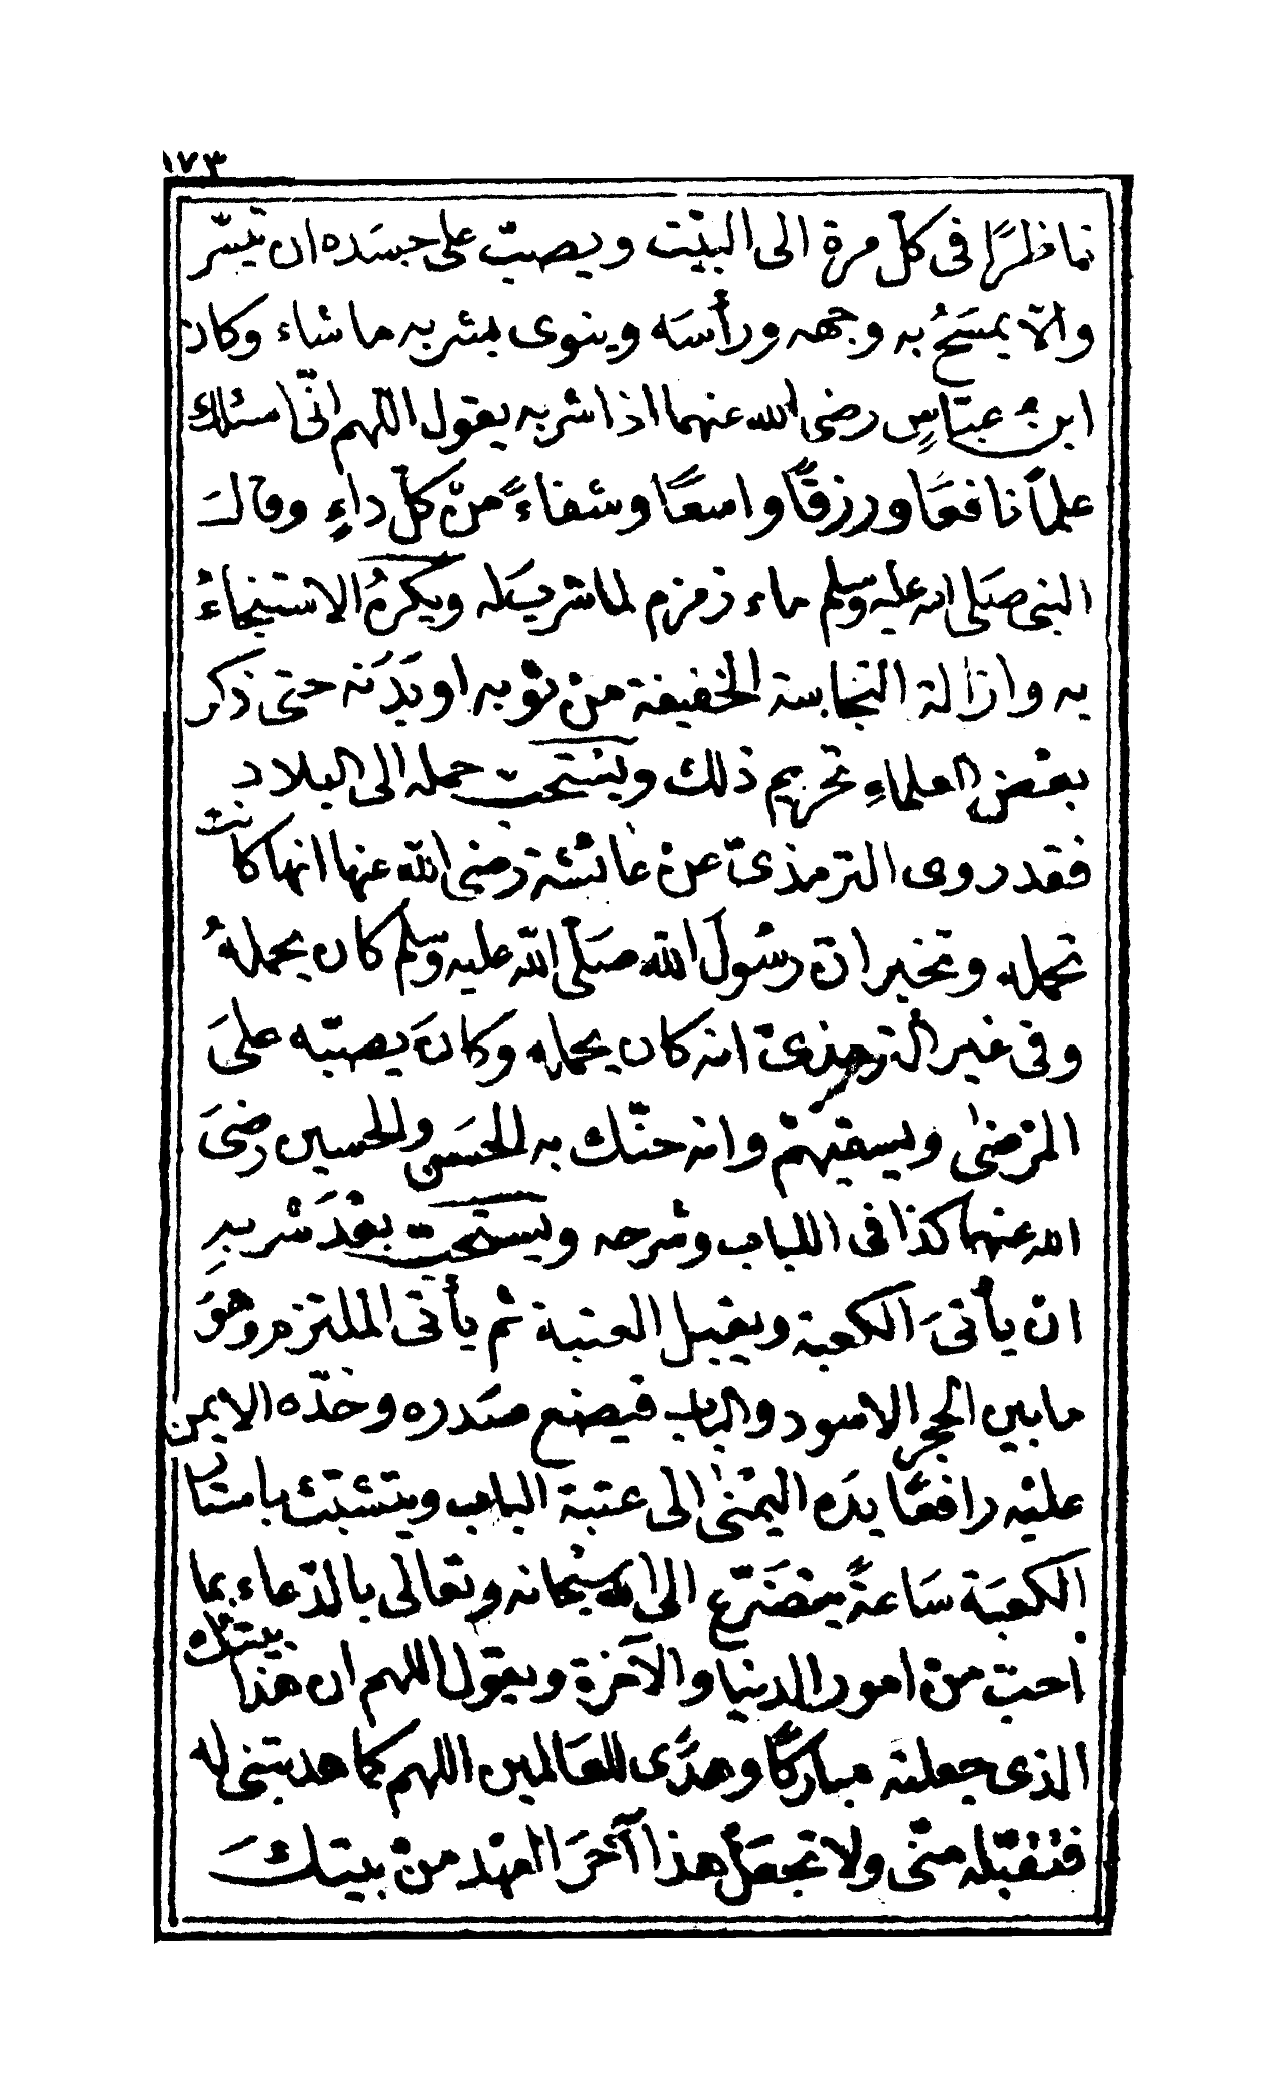 ١٧٣
ناظرًا فى كلّ مرة الى البيْت ويصبّ على جسَده ان تيسّر
والّا يمسَحُ به وجهه ورأسَه وينوى بشربه ما شاء وكان
ابنُ عبّاسٍ رضى الله عنهما اذا شربه يقول اللهم انّى اسئلك
علمًا نافعًا ورزقًا واسعًا وشفاءً منْ كلّ داءٍ وقال
النبى صَلى الله عليه وسلم ماء زمزم لما شرب له ويكرهُ الاستنجاءُ
به وازالة النجاسة الخفيفة منْ ثوبه او بدَنه حتى ذكر
بعْض العلماءِ تحريم ذلك ويسْتحبّ حمله الى البلاد
فقد روى الترمذىّ عنْ عائشة رضى الله عنها انها كانت
تحمله وتخبر انّ رسُولَ الله صَلّى الله عليه وسلم كان يحملهُ
وفى غير الترمذىّ انه كان يحمله وكانَ يصبّه علىَ
المرْضىٰ ويسقيهمْ وانه حنّك به الحسَن والحسين رضىَ
الله عنهما كذا فى اللباب وشرحه ويستحبّ بعْدَ شرْبهِ
انْ يأتىَ الكعبة ويقبل العتبة ثم يأتى الملتزم وهوَ
ما بين الحجر الاسود والباب فيضع صَدره وخدّه الايمن
عليْه رافعًا يدَه اليمْنىٰ الى عتبة الباب ويتشبّث باستار
الكعبَة سَاعةً يتضَرّع الى الله سبْحانه وتعالى بالدّعاء بما
أحبّ منْ امور الدنيا والآخرة ويقول اللهم ان هٰذا بيتك
الذى جعلته مباركًا وهدًى للعَالمين اللهم كما هديتنى له
فتقبّله منّى ولا تجعَلْ هذا آخرَ العهْد منْ بيتكَ